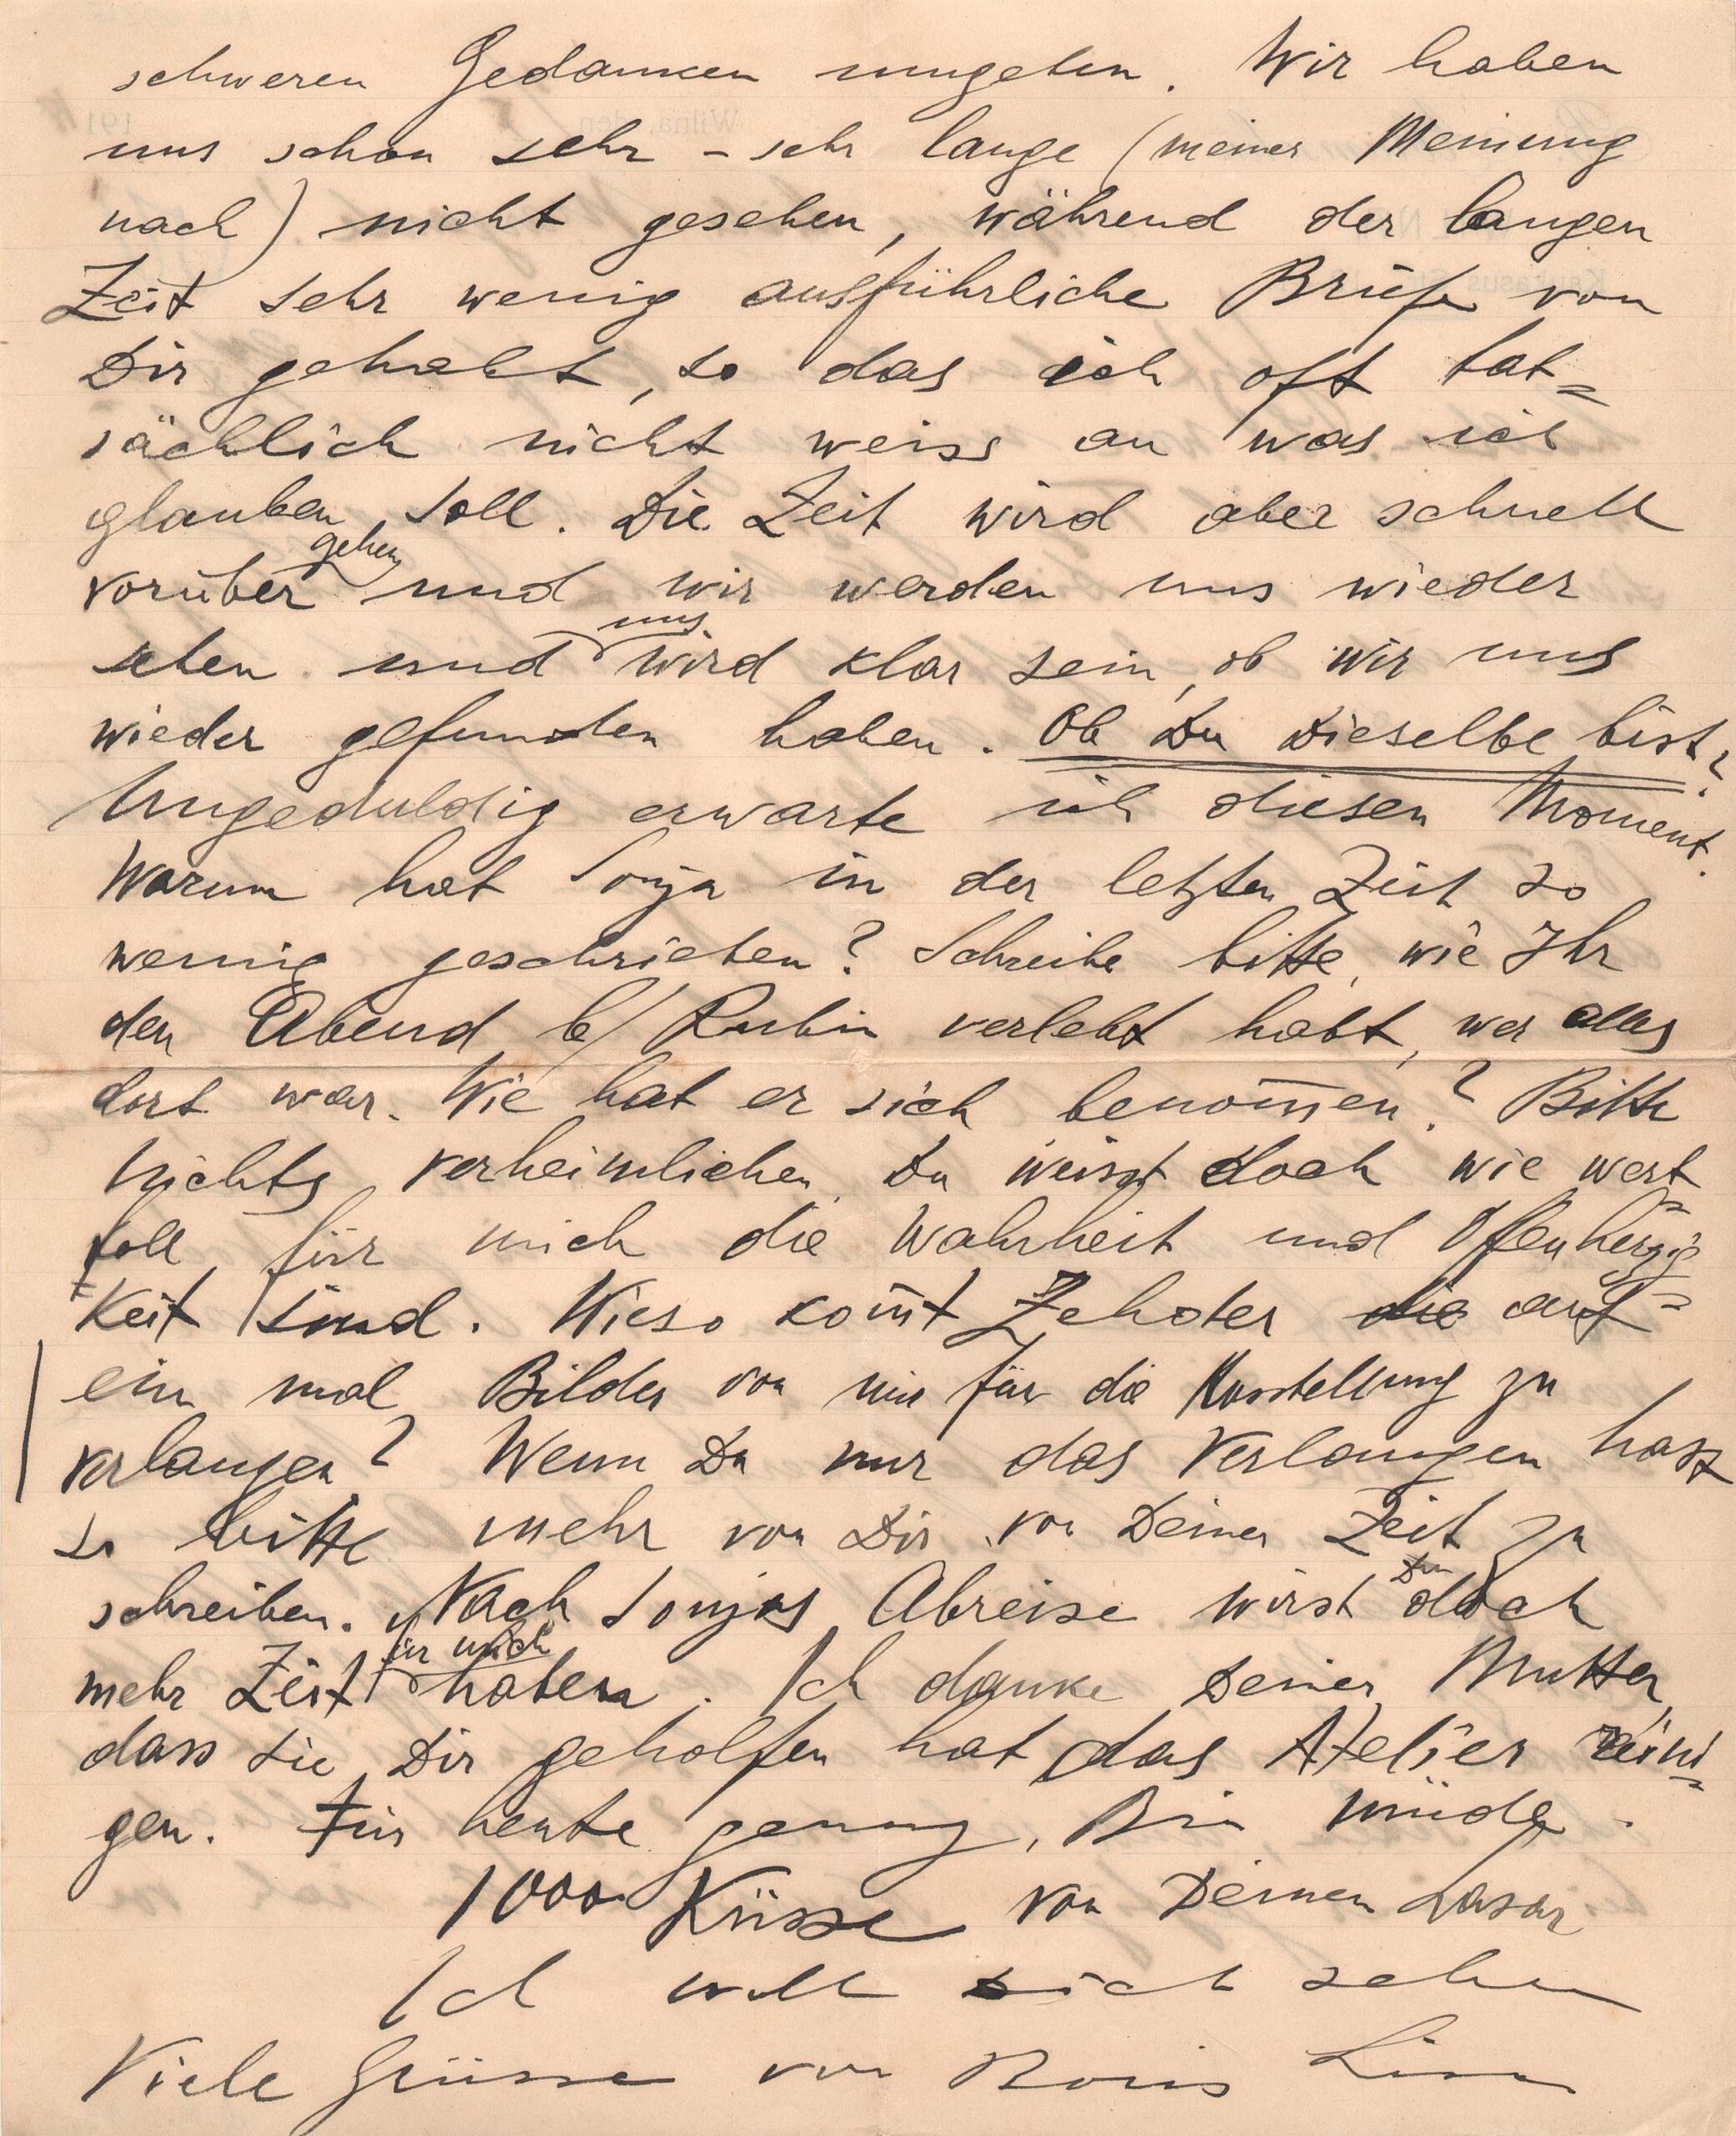 schweren Gedanken umgeben. Wir haben
uns schon sehr - sehr lange (meiner Meinung
nach) nicht gesehen, während der langen
Zeit sehr wenig ausführliche Briefe von
Dir gehabt, so das ich oft tat=
sächlich nicht weiss an was ich
glauben soll. Die Zeit wird aber schnell
vorüber gehen und wir werden uns wieder
sehen und uns wird klar sein, ob wir uns
wieder gefunden haben. Ob Du Dieselbe bist?
Ungeduldig erwarte ich diesen Moment.
Warum hat Sonja in der letzten Zeit so
wenig geschrieben? Schreibe bitte, wie Ihr
den Abend b/ Rubin verlebt habt, wer alles
dort war. Wie hat er sich benom̄en? Bitte
nichts verheimlichen. Du weisst doch wie wert=
foll für mich die Wahrheit und Offenherzig=
keit sind. Wieso kom̄t Zehder die auf=
ein mal Bilder von mir für die Ausstellung zu
verlangen? Wenn Du nur das Verlangen hast
so bitte mehr von Dir, von Deiner Zeit zu
schreiben. Nach Sonjas Abreise wirst Du doch
mehr Zeit für mich haben. Ich danke Deiner Mutter,
dass sie Dir geholfen hat das Atelier reini=
gen. Für heute genug, Bin müde.
1000 Küsse von Deinen Lasar
Ich will Dich sehen
Viele Grüsse von Boris Lina
Wilna, den 191